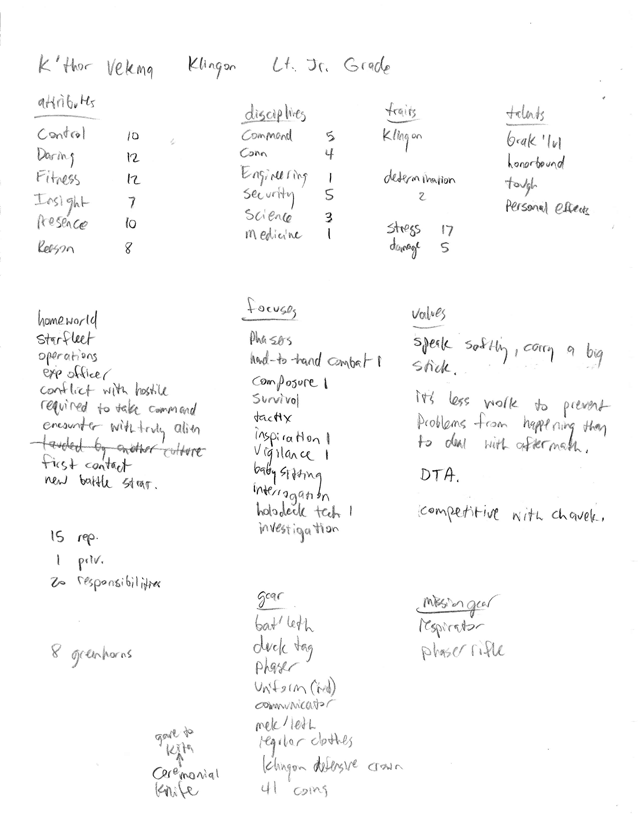 K'thor Vekma Klingon Lt. Jr. Grade
attributes
Control 10
Daring 12
Fitness 12
Insight 7
Presence 10
Reason 8
disciplines
Command 5
Conn 4
Engineering 1
Security 5
Science 3
Medicine 1
traits
Klingon
determination
2
stress 17
damage 5
talents
brak'lul
honorbound
tough
Personal effects
homeworld
starfleet
operations
exp officer
conflict with hostile
required to take command
encounter with truly alien
lauded by another culture
first contact
new battle strat.
15 rep.
1 priv.
20 responsibilities
8 greenhorns
focuses
phasers
hand-to-hand combat 1
composure 1
survival
tactix
inspiration 1
vigilance 1
babysitting
interrogation
holodeck tech 1
investigation
values
speak softly, carry a big
stick.
it's less work to prevent
problems from happening than
to deal with aftermath.
DTA.
competitive with chavek.
gear
bat'leth
duck tag
phaser
uniform (ind)
communicator
mek'leth
regular clothes
klingon defensive crown
41 coins
gave to
kita
ceremonial
knife
mission gear
respirator
phaser rifle